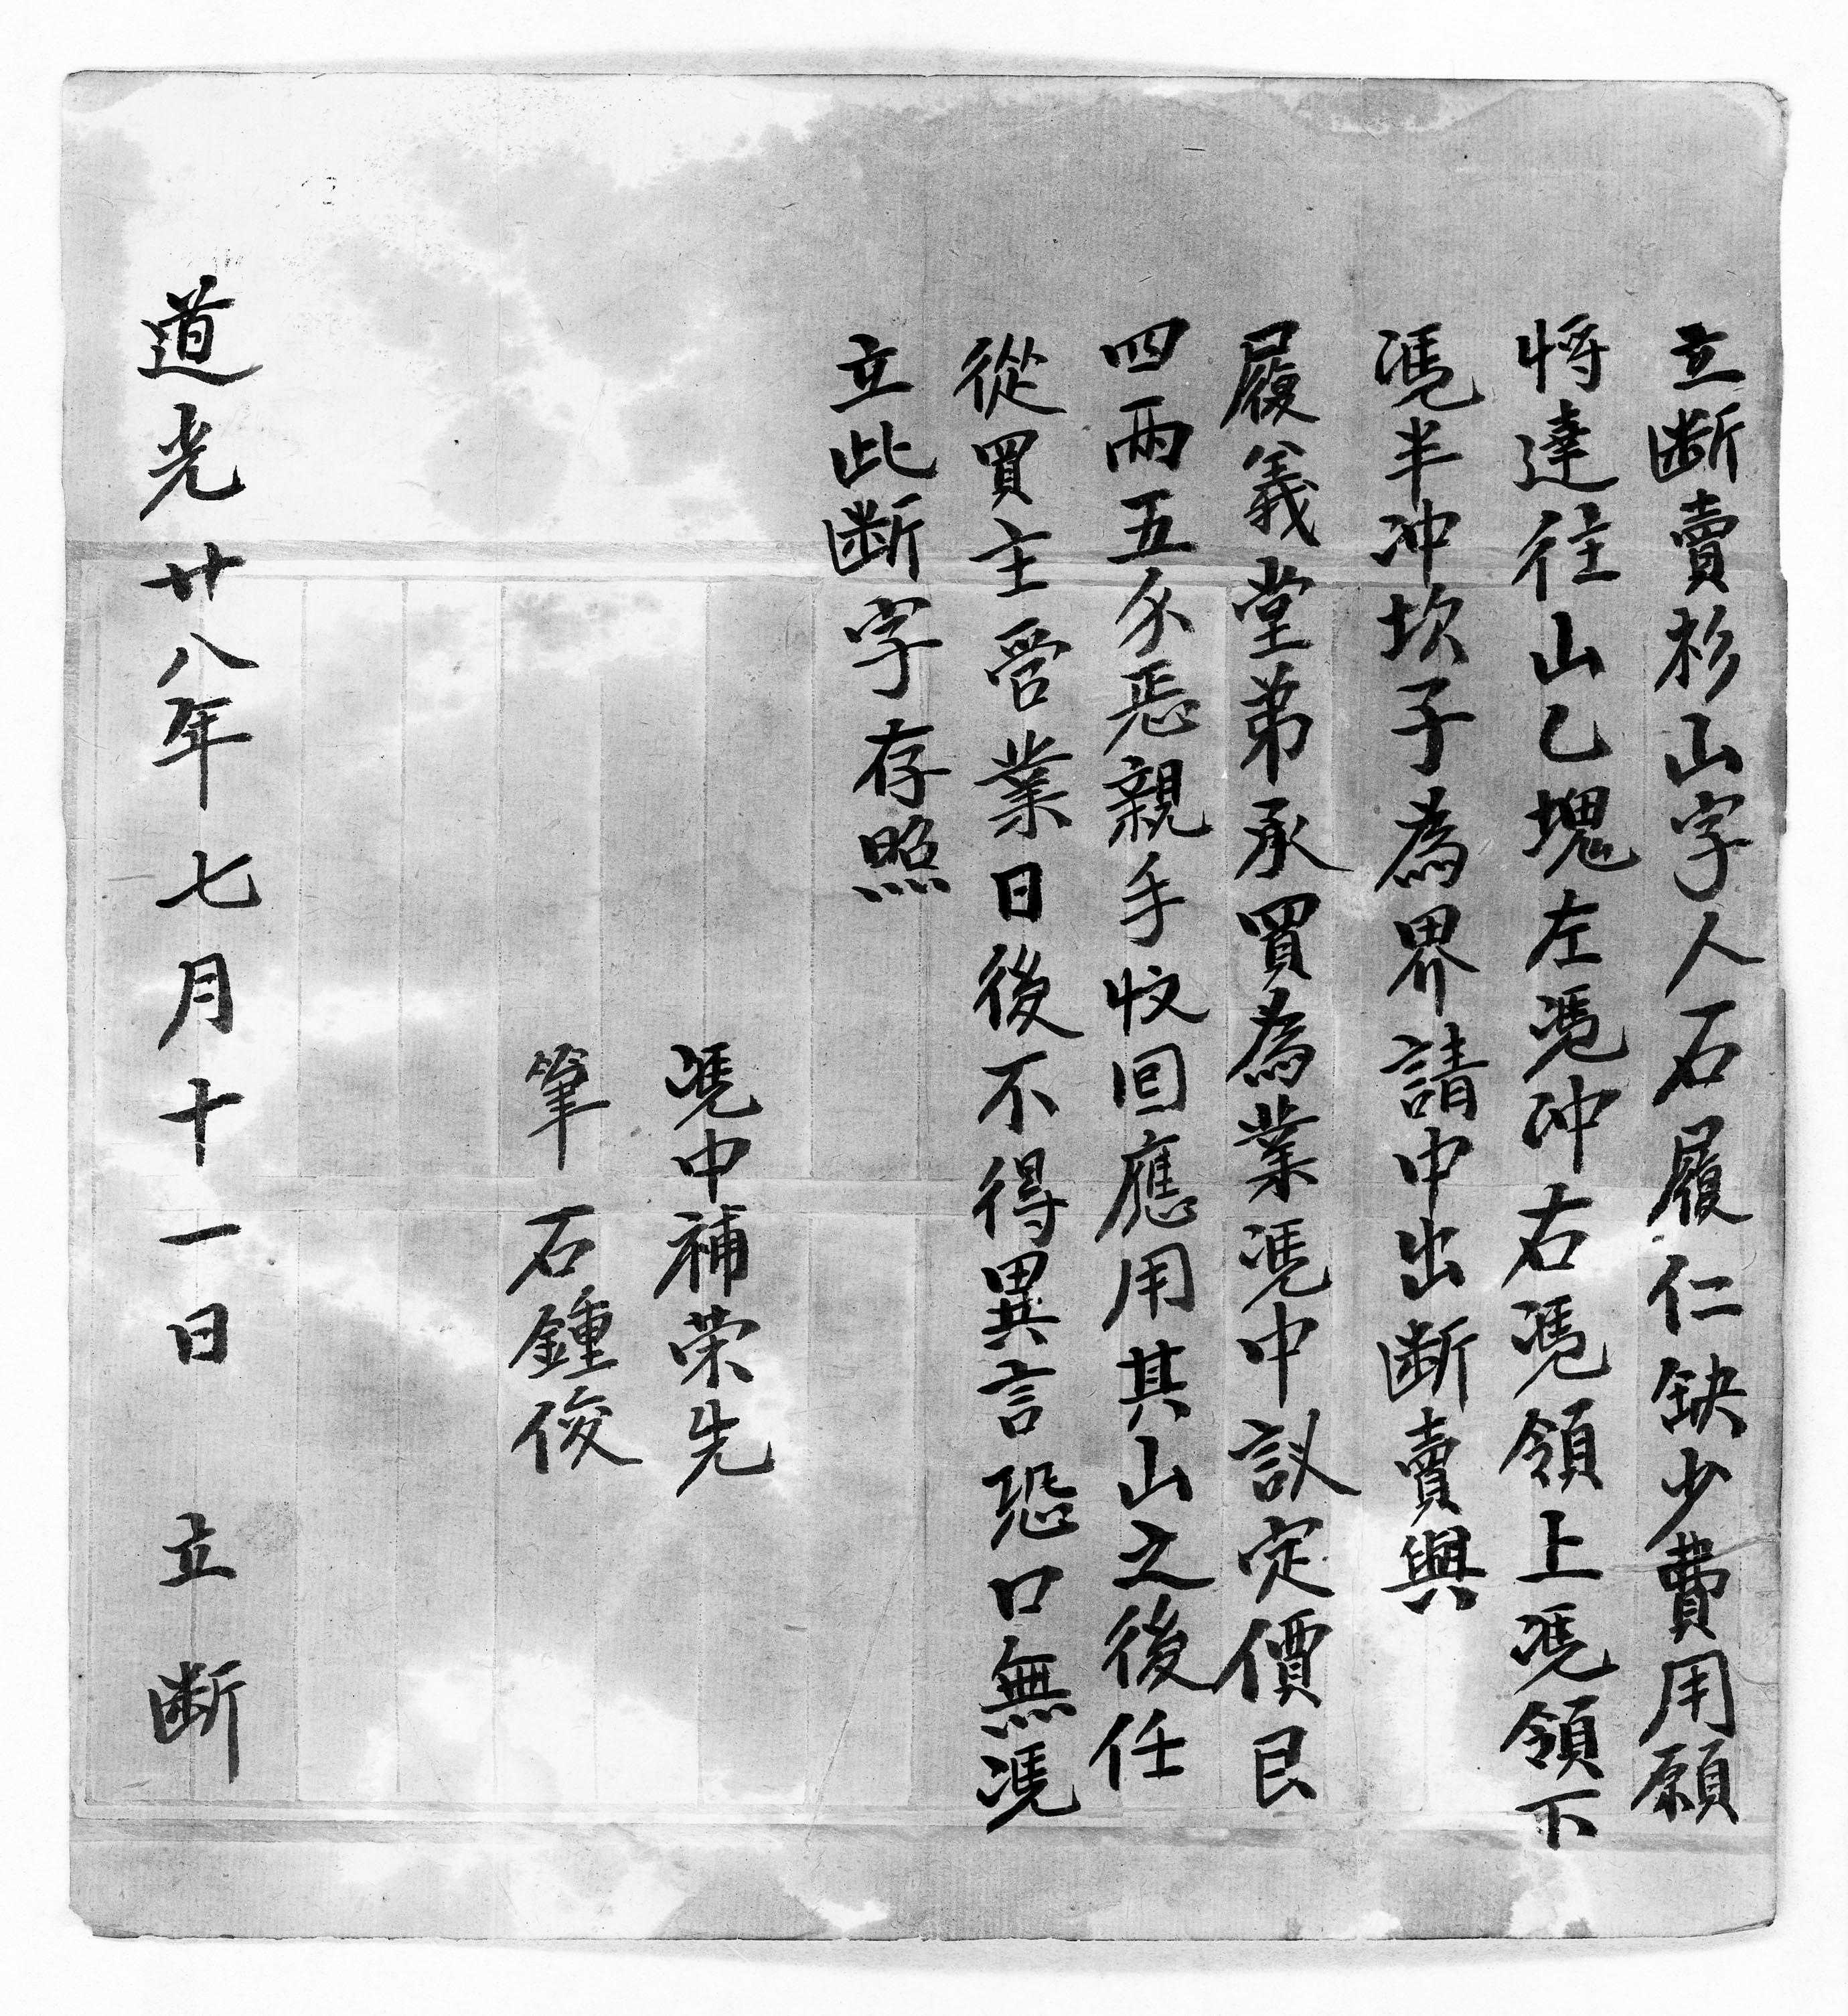 立断賣杉山字人石履仁缺少費用願
將達往山乙塊左慿冲右慿領上慿領下
慿半冲坎子為界請中出断賣與
履義堂弟承買為業慿中議定價艮
四兩五分悉親手收回應用其山之後任
從買主管業日後不得異言恐口無慿
立此断字存照
慿中補荣先
筆石鍾俊
道光廿八年七月十一日立断